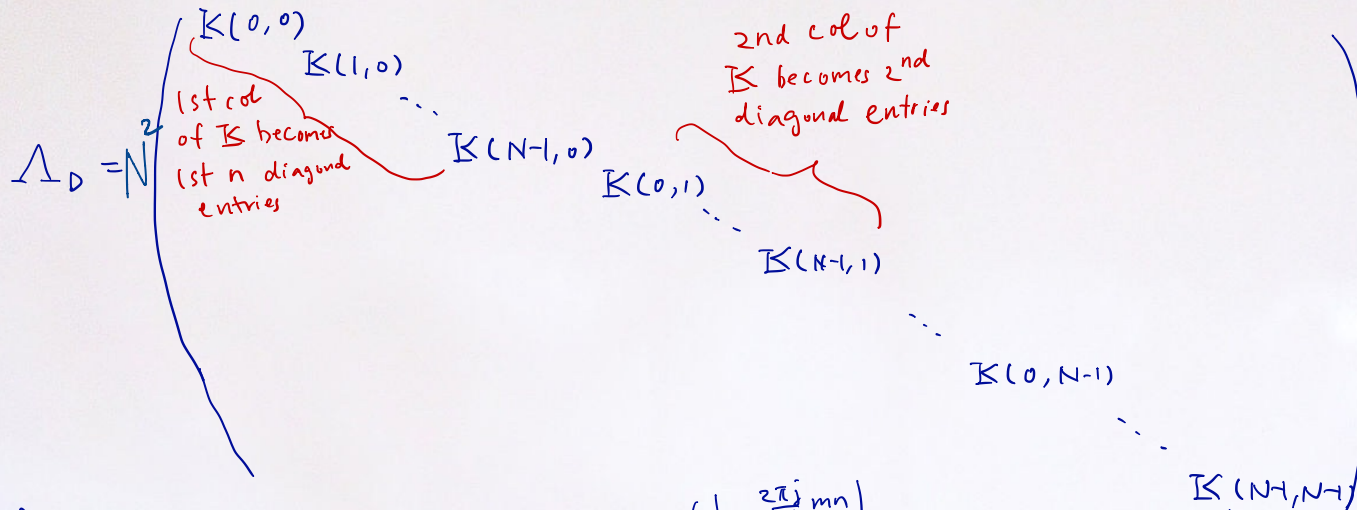 𝕂(0,0)
𝕂(1,0)
⋱
𝕂(N-1,0)
𝕂(0,1)
⋱
𝕂(N-1,1)
⋱
𝕂(0,N-1)
⋱
𝕂(N-1,N-1)
Λ_D = N²
1st col
of 𝕂 becomes
1st n diagonal
entries
2nd col of
𝕂 becomes 2nd
diagonal entries
2πj mn